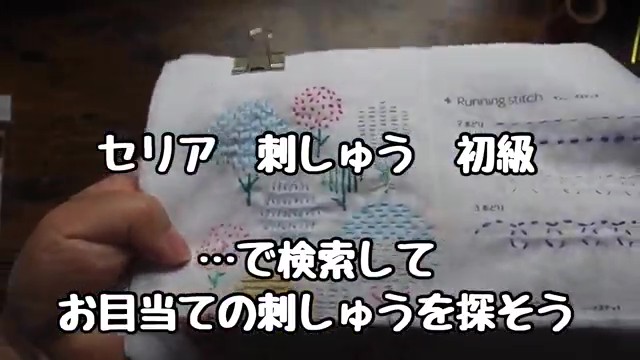 Running stitch
セリア 刺しゅう 初級
…で検索して
お目当ての刺しゅうを探そう